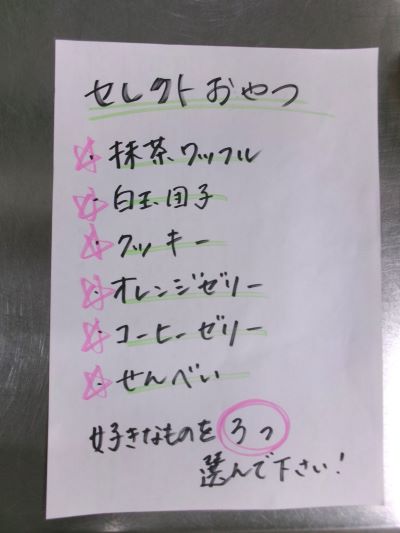 セレクトおやつ
・抹茶ワッフル
・白玉団子
・クッキー
・オレンジゼリー
・コーヒーゼリー
・せんべい
好きなものを3つ
選んで下さい!